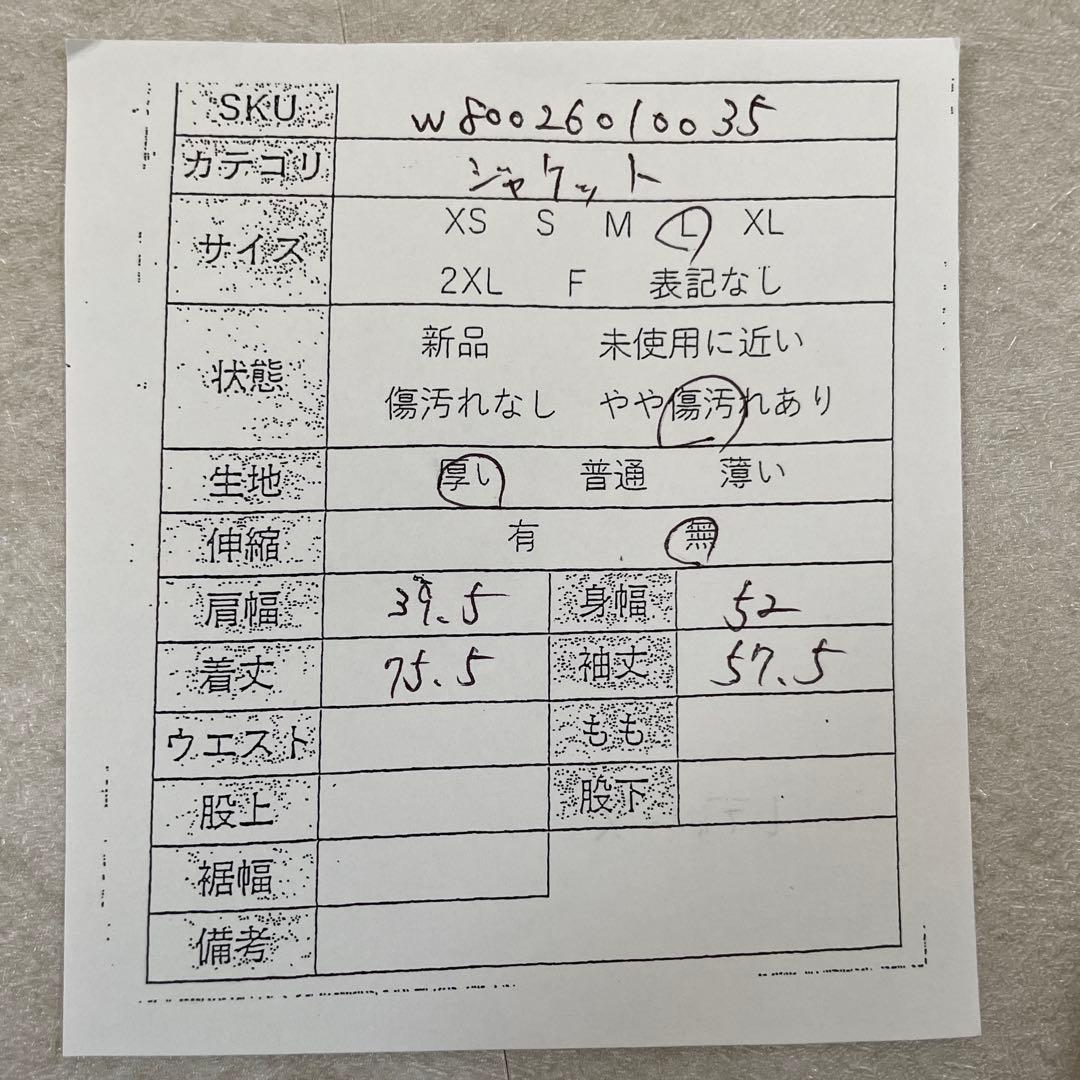 SKU w8002601 0035
カテゴリ ジャケット
サイズ XS S M L XL
2XL F 表記なし
状態 新品 未使用に近い
傷汚れなし やや傷汚れあり
生地 厚い 普通 薄い
伸縮 有 無
肩幅 39.5 身幅 52
着丈 75.5 袖丈 57.5
ウエスト もも
股上 股下
裾幅
備考